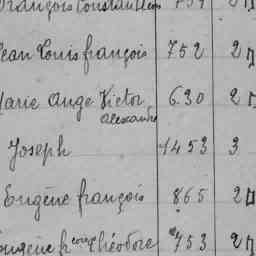 François Constantin 754 2
Jean Louis françois 752 2
Marie Ange Victor 630 2
alexandre
Joseph 1453 3
Eugène françois 865 2
Eugène fr çois Théodore 753 2